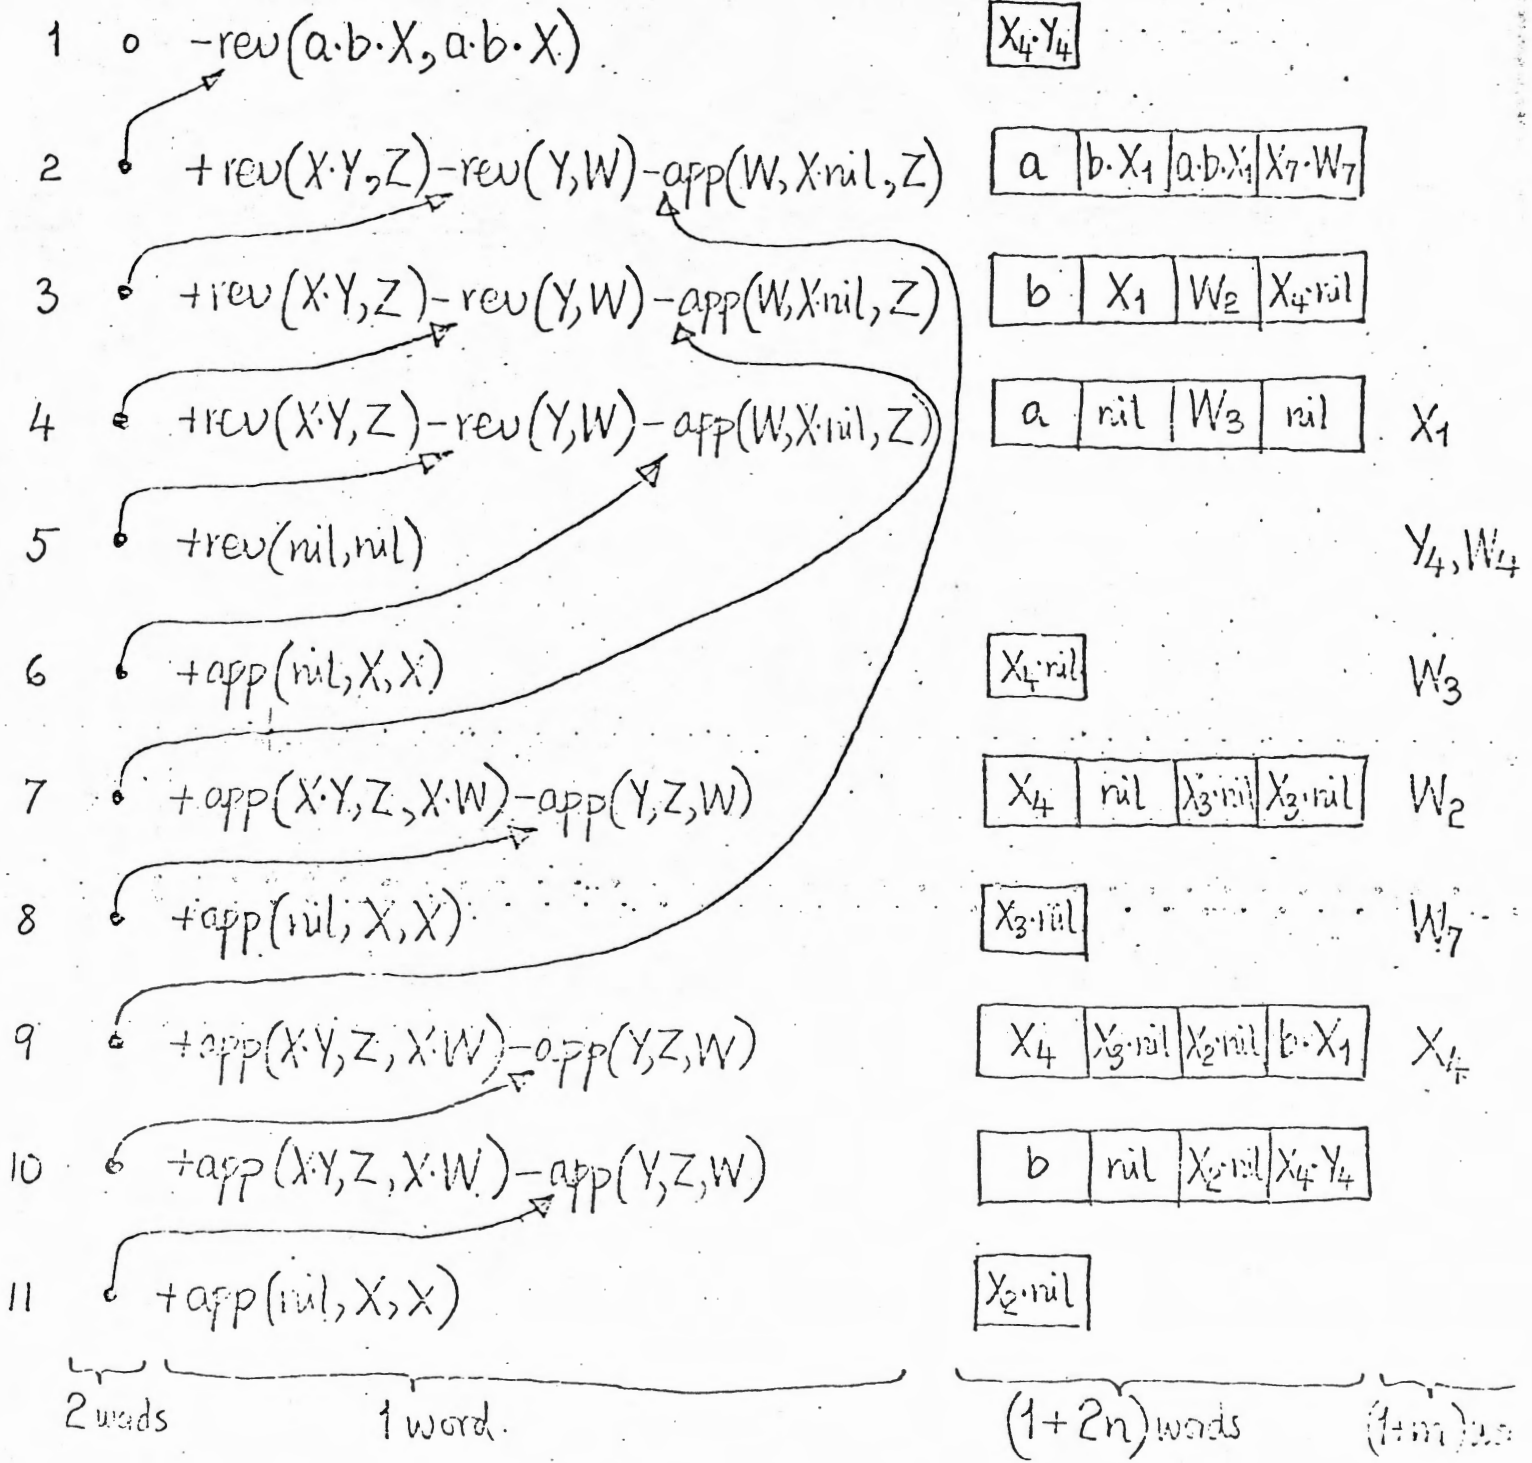 1 o -rev(a·b·X, a·b·X) X₄·Y₄
2 +rev(X·Y,Z)-rev(Y,W)-app(W,X·nil,Z) a b·X₁ a·b·X₁ X₇·W₇
3 +rev(X·Y,Z)-rev(Y,W)-app(W,X·nil,Z) b X₁ W₂ X₄·nil
4 +rev(X·Y,Z)-rev(Y,W)-app(W,X·nil,Z) a nil W₃ nil X₁
5 +rev(nil,nil) Y₄,W₄
6 +app(nil,X,X) X₄·nil W₃
7 +app(X·Y,Z,X·W)-app(Y,Z,W) X₄ nil X₃·nil X₃·nil W₂
8 +app(nil,X,X) X₃·nil W₇
9 +app(X·Y,Z,X·W)-app(Y,Z,W) X₄ X₃·nil X₂·nil b·X₁ X₄
10 +app(X·Y,Z,X·W)-app(Y,Z,W) b nil X₂·nil X₄·Y₄
11 +app(nil,X,X) X₂·nil
2 words 1 word. (1+2n) words (1+m)